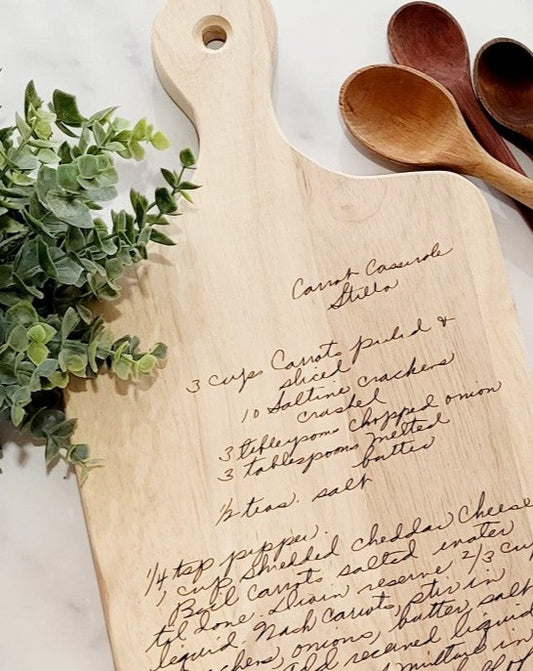 Carrot Casserole
Stella
3 cups Carrots peeled &
sliced
10 Saltine crackers
crushed
3 tablespoons chopped onion
3 tablespoons melted
butter
1/2 teas. salt
1/4 tsp pepper.
1 cup Shredded cheddar cheese
Boil carrots salted water
til done. Drain reserve 2/3 cup
liquid. Mash carrots, stir in
onions, butter, salt
Add liquid
mixture in